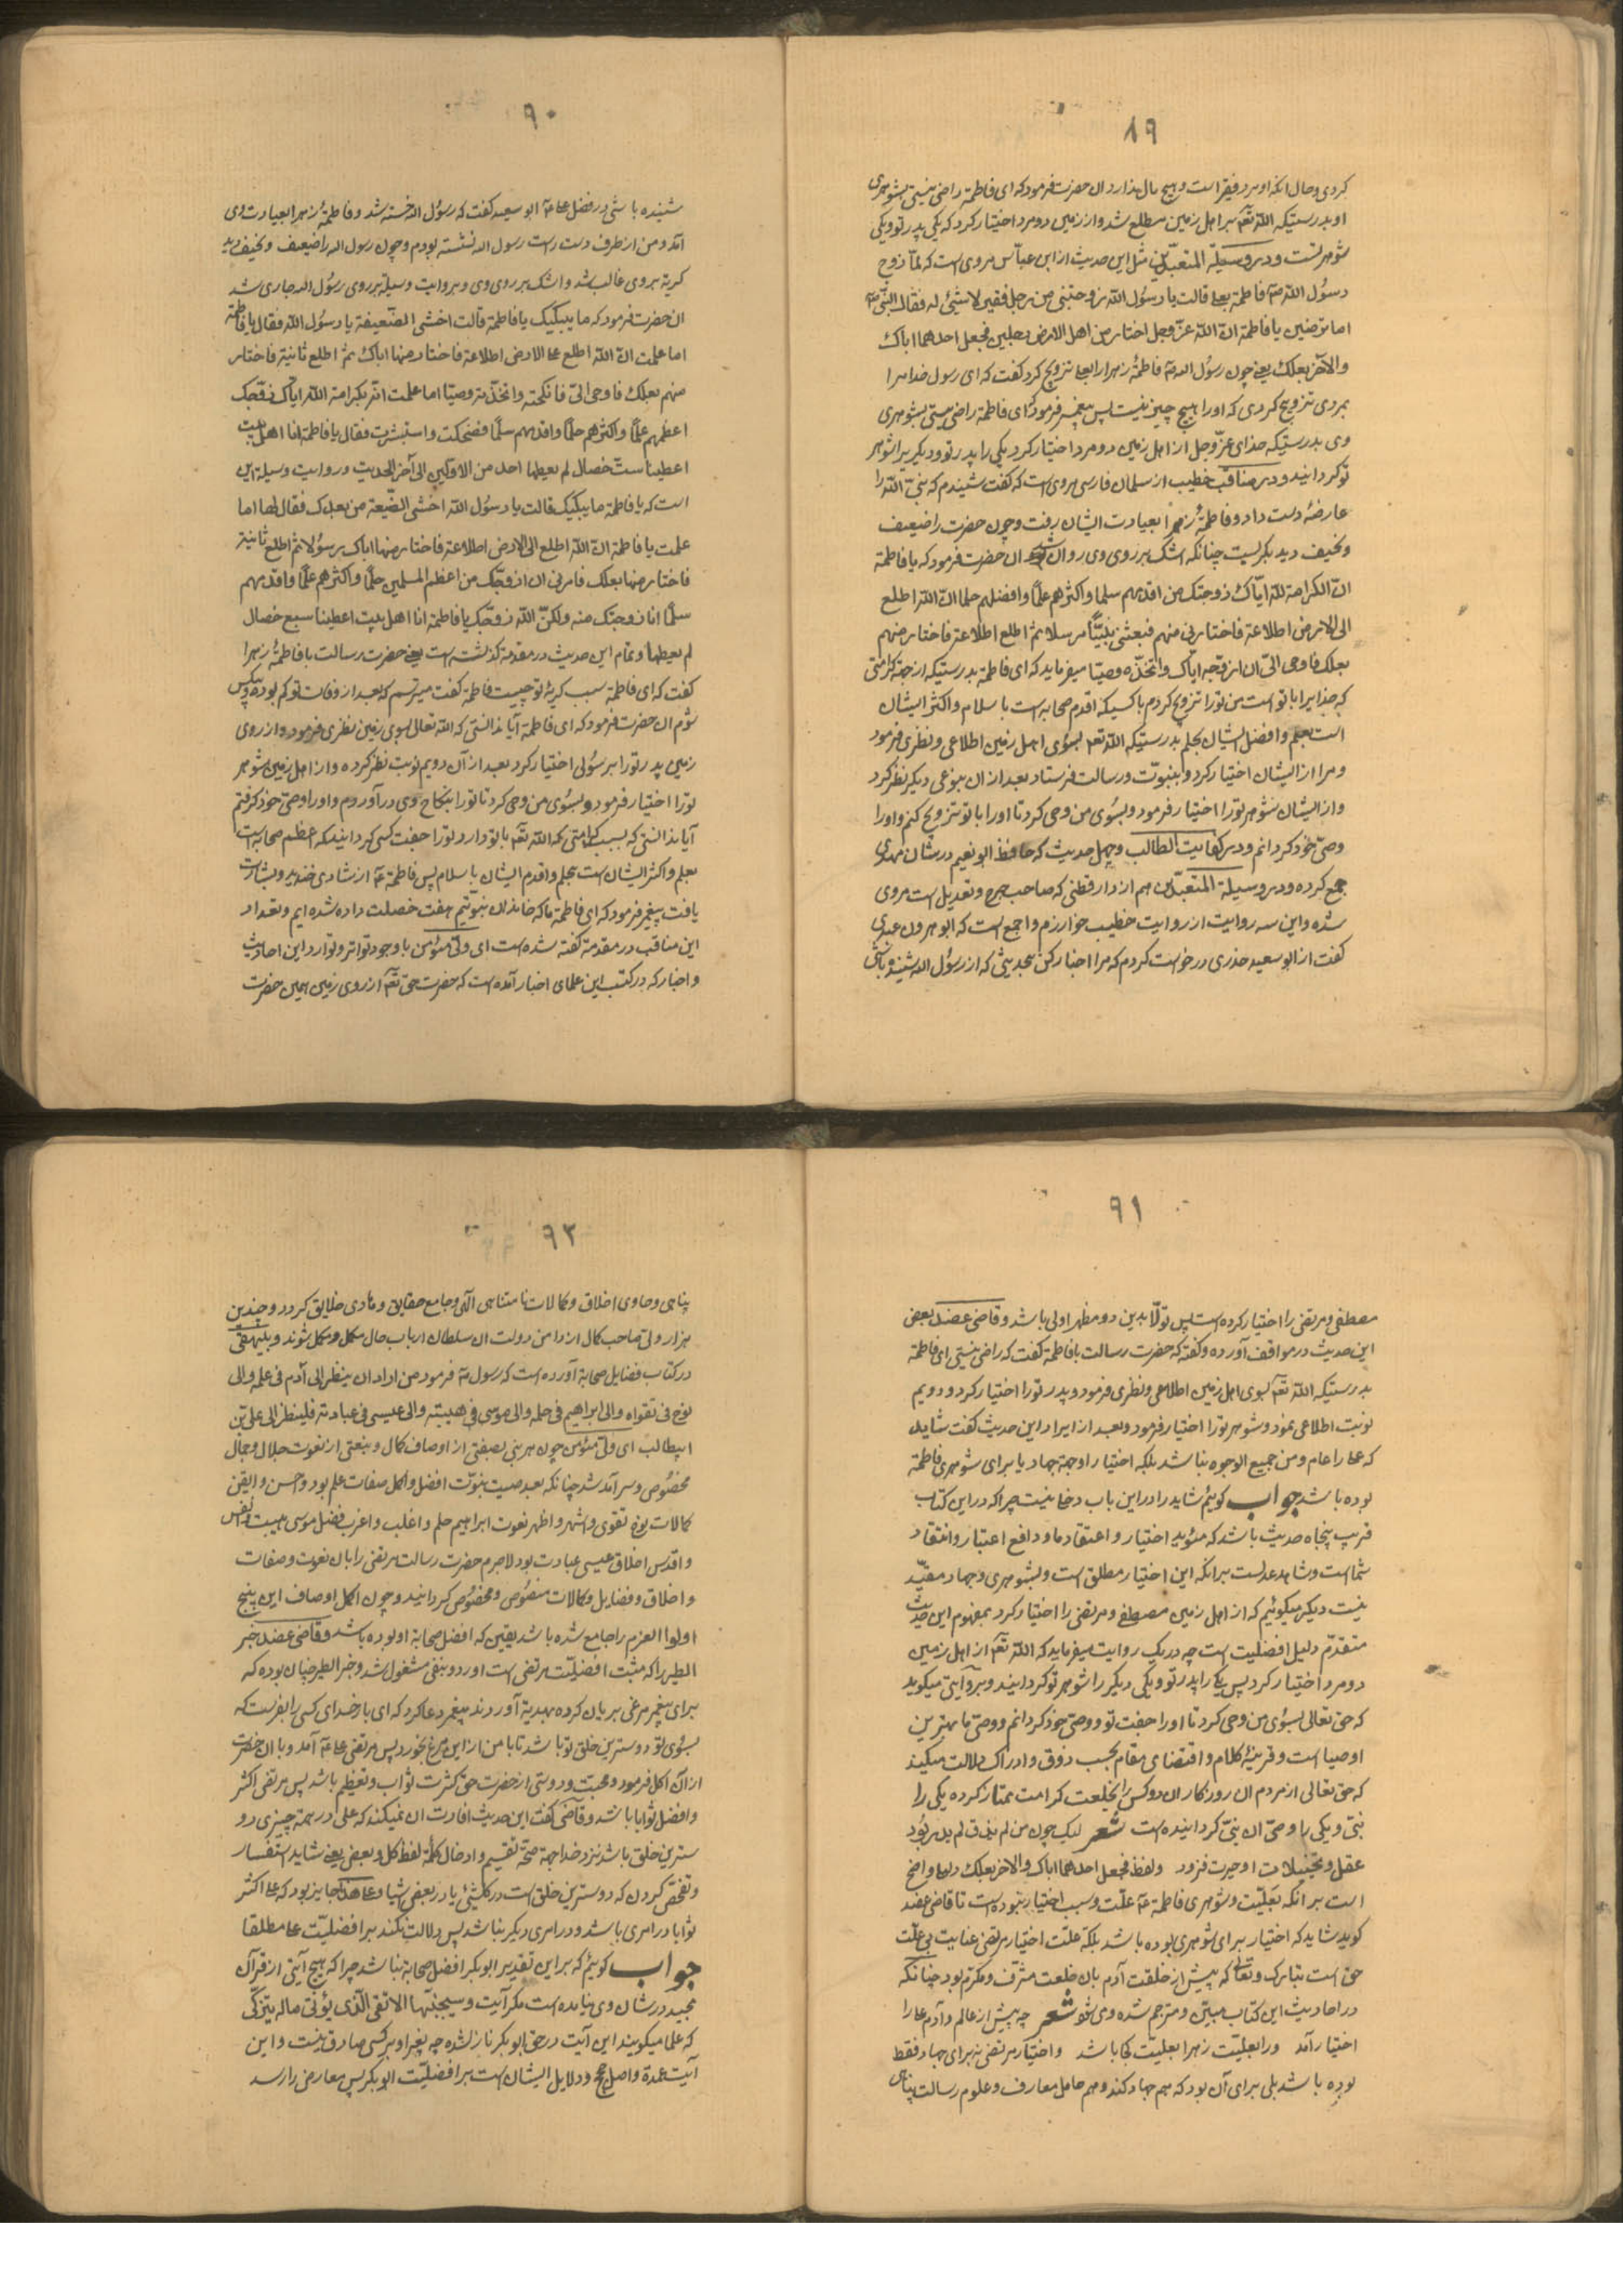 ۸۹
کردی و حال آنکه او مرد فقیر است و هیچ مال ندارد ان حضرت فرمود که ای فاطمة راضی نیستی بشوهری
او بدرستیکه اللّه تعٓم بر اهل زمین مطلع شد و از زمین دو مرد اختیار کرد که یکی پدر تو و یکی
شوهر تست و در وسیلة المتعبّدین مثل این حدیث از ابن عبّاس مروی است که لمّا زوج
رسُول اللّه صٓم فاطمة بعلی قالت یا رسُول اللّه زوجتنی من رجل فقیر لا شئ له فقال النبّی صٓم
اما ترضین یا فاطمة انّ اللّه عزّ وجل اختار من اهل الارض رجلین فجعل احدهما اباک
والآخر بعلک یعنی چون رسول اللّه صٓم فاطمهٔ زهرا را بعلی تزویج کرد گفت که ای رسول خدا مرا
بمردی تزویج کردی که او را هیچ چیز نیست پس پیغمبر فرمود که ای فاطمة راضی نیستی بشوهری
وی بدرستیکه خدای عزّ وجل از اهل زمین دو مرد اختیار کرد یکی را پدر تو و دیگریرا شوهر
تو گردانید و در مناقب خطیب از سلمان فارسی مروی است که گفت شنیدم که نبیّ اللّه را
عارضهٔ دست داد و فاطمهٔ زهرا بعیادت ایشان رفت و چون حضرت را ضعیف
و نحیف دید بگریست چنانکه اشک بر روی وی روان شد ان حضرت فرمود که یا فاطمة
انّ الکرامة للّه ایّاک زوجتک من اقدمهم سلما و اکثرهم علمًا و افضلهم حلما انّ اللّه اطلع
الی الارض اطلاعة فاختارنی منهم فبعثنی نبیًّا مرسلا ثم اطلع اطلاعة فاختار منهم
بعلک فاوحی الیّ ان ازوّجه ایاک و اتخذه وصیّا میفرماید که ای فاطمة بدرستیکه از جهة کرامتی
که خدایرا با تو است من تو را تزویج کردم با کسیکه اقدم صحابه است با سلام و اکثر ایشان
است بعلم و افضل ایشان بحلم بدرستیکه اللّه تعٓم بسوی اهل زمین اطلاعی و نظری فرمود
و مرا از ایشان اختیار کرد و بنبوّت و رسالت فرستاد بعد از ان بنوعی دیگر نظر کرد
و از ایشان شوهر تو را اختیار فرمود و بسُوی من وحی کرد تا او را با تو تزویج کنم و او را
وصیّ خود گردانم و در کفایت الطالب و چهل حدیث که حافظ ابو نعیم در شان مهدی
جمع کرده و در وسیلة المتعبدّین هم از دار قطنی که صاحب جرح و تعدیل است مروی
شده و این سه روایت از روایت خطیب خوارزم و اجمع است که ابو هرون عبدی
گفت از ابو سعید خدری درخواست کردم که مرا اخبار کن بحدیثی که از رسول اللّه شنیده باشی
۹۰
شنیده باشی در فضل علی عٓم ابو سعید گفت که رسول اللّه خسته شد و فاطمهٔ زهرا بعیادت وی
آمد و من از طرف دست راست رسول اللّه نشسته بودم و چون رسول اللّه را ضعیف و نحیف دید
گریه بر وی غالب شد و اشک بر روی وی و بروایت وسیله بر روی رسُول اللّه جاری شد
ان حضرت فرمود که ما یبکیک یا فاطمة قالت اخشی الضّعیفة یا رسُول اللّه فقال یا فاطمة
اما علمت انّ اللّه اطلع علی الارض اطلاعة فاختار منها اباک ثم اطلع ثانیة فاختار
منهم بعلک فاوحی الیّ فانکحته و اتخذته وصیّا اما علمت انّه بکرامة اللّه ایّاک زوّجک
اعظمهم علمًا و اکثرهم حلمًا و اقدمهم سلمًا فضحکت و استبشرت فقال یا فاطمة انا اهل بیت
اعطینا ستّ خصال لم یعطها احد من الاوّلین الی آخر الحدیث و روایت وسیلة این
است که یا فاطمة ما یبکیک قالت یا رسُول اللّه اخشی الضّیعة من بعدک فقال لها اما
علمت یا فاطمة انّ اللّه اطلع الی الارض اطلاعة فاختار منها اباک رسُولا ثم اطلع ثانیة
فاختار منها بعلک فامرنی ان ازوجّک من اعظم المسلمین حلمًا و اکثرهم علمًا و اقدمهم
سلمًا انا زوجتک منه ولکنّ اللّه زوجّک یا فاطمة انا اهل بیت اعطینا سبع خصال
لم یعطها و تمام این حدیث در مقدمة گذشته است یعنی حضرت رسالت با فاطمهٔ زهرا
گفت که ای فاطمة سبب گریهٔ تو چیست فاطمة گفت میترسم که بعد از وفات تو کم بوده و بیکس
شوم ان حضرت فرمود که ای فاطمة آیا ندانستی که اللّه تعالی بسوی زمین نظری فرمود و از روی
زمین پدر تو را برسُولی اختیار کرد بعد از آن دویم نوبت نظر کرده و از اهل زمین شوهر
تو را اختیار فرمود و بسُوی من وحی کرد تا تو را بنکاح وی در آوردم و او را وصیّ خود گرفتم
آیا ندانستی که بسبب کرامتی که اللّه تعٓم با تو دارد تو را جفت کسی گردانید که اعظم صحابه است
بعلم و اکثر ایشان است بحلم و اقدم ایشان با سلام پس فاطمة عٓم از شادی خندید و بشارت
یافت پیغمبر فرمود که ای فاطمة ما که خاندان نبوتیم هفت خصلت داده شده ایم و تعداد
این مناقب در مقدمة گفته شده است ای ولیّ مؤمن با وجود تواتر و توارد این احادیث
و اخبار که در کتب این علمای اخبار آمده است که حضرت حق تعٓم از روی زمین همین حضرت
۹۱
مصطفی و مرتضی را اختیار کرده است پس تولّا بدین دو مظهر اولی باشد و قاضی عضد بعضی
این حدیث در مواقف آورده و گفته که حضرت رسالت با فاطمة گفت که راضی نیستی ای فاطمة
بدرستیکه اللّه تعٓم بسوی اهل زمین اطلاعی و نظری فرمود و پدر تو را اختیار کرد و دویم
نوبت اطلاعی نمود و شوهر تو را اختیار فرمود و بعد از ایراد این حدیث گفت شاید
که علی را عام و من جمیع الوجوه نباشد بلکه اختیار او جهة جهاد یا برای شوهری فاطمة
بوده باشد جواب گویم شاید را در این باب دخلی نیست چرا که در این کتاب
قریب پنجاه حدیث باشد که مئوید اختیار و اعتقاد ما و دافع اعتبار و انتقاد
شما است و شاهد عدلست بر انکه این اختیار مطلق است و بشوهری و جهاد مقیّد
نیست دیگر میگوئیم که از اهل زمین مصطفی و مرتضی را اختیار کرد بمفهوم این حدیث
متقدّم دلیل افضلیت است چه در یک روایت میفرماید که اللّه تعٓم از اهل زمین
دو مرد اختیار کرد پس یکی را پدر تو و یکی دیگر را شوهر تو گردانید و بروایتی میگوید
که حق تعالی بسُوی من وحی کرد تا او را جفت تو و وصیّ خود گردانم و وصیّ ما بهترین
اوصیا است و قرینهٔ کلام و اقتضای مقام بحسب ذوق و ادراک دلالت میکند
که حق تعالی از مردم ان روزگار ان دو کس را بخلعت کرامت ممتاز کرده یکی را
نبیّ و یکی را وصیّ ان نبیّ گردانیده است شعر لیک چون من لم یذق لم یدر بُود
عقل و تخییلات او حیرت فزود و لفظ فجعل احدهما اباک و الاخر بعلک دلیل واضح
است بر انکه بَعَلیّت و شوهری فاطمة عٓم علّت و سبب اختیار نبوده است تا قاضی عضد
گوید شاید که اختیار برای شوهری بوده باشد بلکه علّت اختیار مرتضی عنایت بی علّت
حق است تبارک و تعالی که پیش از خلقت آدم بان خلعت مشرّف و مکرّم بود چنانکه
در احادیث این کتاب مبیّن و مترجم شده و می شود شعر چه پیش از عالم و آدم علی را
اختیار آمد ورا بعلیّت زهرا بعلیّت کجا باشد و اختیار مرتضی نه برای جهاد فقط
بوده باشد بلی برای آن بود که هم جهاد کند و هم حامل معارف و علوم رسالت پناهی
۹۲
پناهی و حاوی اخلاق و کمالات نامتناهی الٓهی و جامع حقایق و هادی خلایق گردد و چندین
هزار ولی صاحب کمال از دامن دولت ان سلطان ارباب حال مکمل و مکمل شوند و بیهقی
در کتاب فضایل صحابة آورده است که رسول صٓم فرمود من اراد ان ینظر الی آدم فی علمه والی
نوح فی تقواه والی ابراهیم فی حلمه والی موسی فی هیبته والی عیسی فی عبادته فلینظر الی علی بن
ابیطالب ای ولیّ مئومن چون هر نبی بصفتی از اوصاف کمال و بنعتی از نعوت جلال و جمال
مخصُوص و سر آمد شد چنانکه بعد صیت نبوّت افضل و اکمل صفات علم بود و احسن و الیقن
کمالات نوح تقوی و اشهر و اظهر نعوت ابراهیم حلم و اغلب و اعزب فضل موسی هیبت و انفس
و اقدس اخلاق عیسی عبادت بود لاجرم حضرت رسالت مرتضی را بان نعوت و صفات
و اخلاق و فضایل و کمالات منصُوص و مخصُوص گردانید و چون اکمل اوصاف این پنج
اولوا العزم را جامع شده باشد یقین که افضل صحابة او بوده باشد و قاضی عضد خبر
الطیر را که مثبت افضلیّت مرتضی است اورد و بنفی مشغول شد و خبر الطیر چنان بوده که
برای پیغمبر مرغی بریان کرده بهدیة آوردند پیغمبر دعا کرد که ای بار خدای کسی را بفرست که
بسُوی تو دوسترین خلق تو باشد تا با من از این مرغ بخورد پس مرتضی علی عٓم آمد و با ان حضرت
از ان اکل فرمود و محبت و دوستی از حضرت حق کثرت ثواب و تعظیم باشد پس مرتضی اکثر
و افضل ثوابا باشد و قاضی گفت این حدیث افادت ان نمیکند که علی در همه چیزی دو
سترین خلق باشد نزد خدا جهة صحّة تقسیم و ادخال کلمهٔ لفظ کل و بعض یعنی شاید استفسار
و تفحّص کردن که دوسترین خلق است در کل شئی یا در بعض شیا و علی هذا جایز بود که علی اکثر
ثوابا در امری باشد و در امری دیگر نباشد پس دلالت نکند بر افضلیّت علی مطلقا
جواب گویم که بر این تقدیر ابوبکر افضل صحابة نباشد چرا که هیچ آیتی از قرآن
مجید در شان وی نیامده است مگر آیت و سیجنبّها الاتقی الّذی یؤتی ماله یتزکّی
که علما میگویند این آیت در حق ابوبکر نازل شده چه بغیر او بر کسی صادق نیست و این
آیت عمدة و اصل حجج و دلایل ایشان است بر افضلیّت ابوبکر پس معارض را رسد